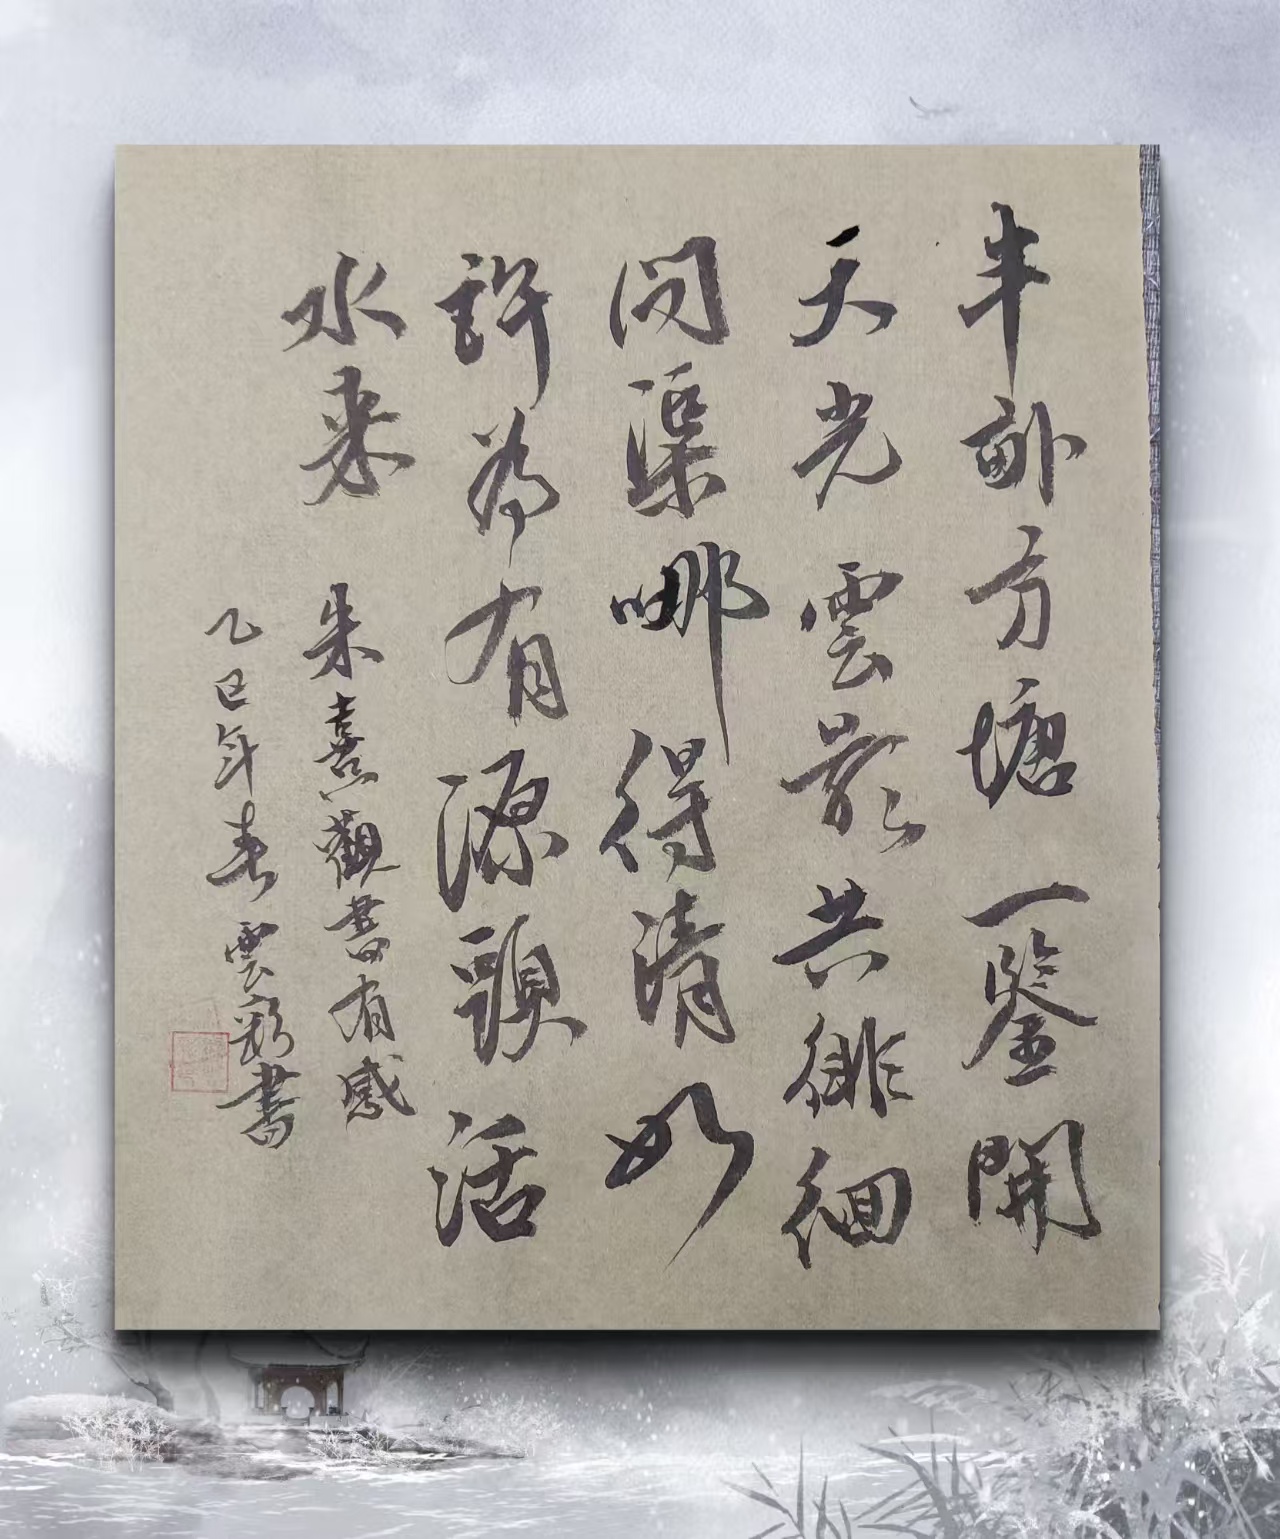 半畝方塘一鑒開
天光雲影共徘徊
問渠哪得清如
許為有源頭活
水來
朱熹觀書有感
乙巳年春雲彩書